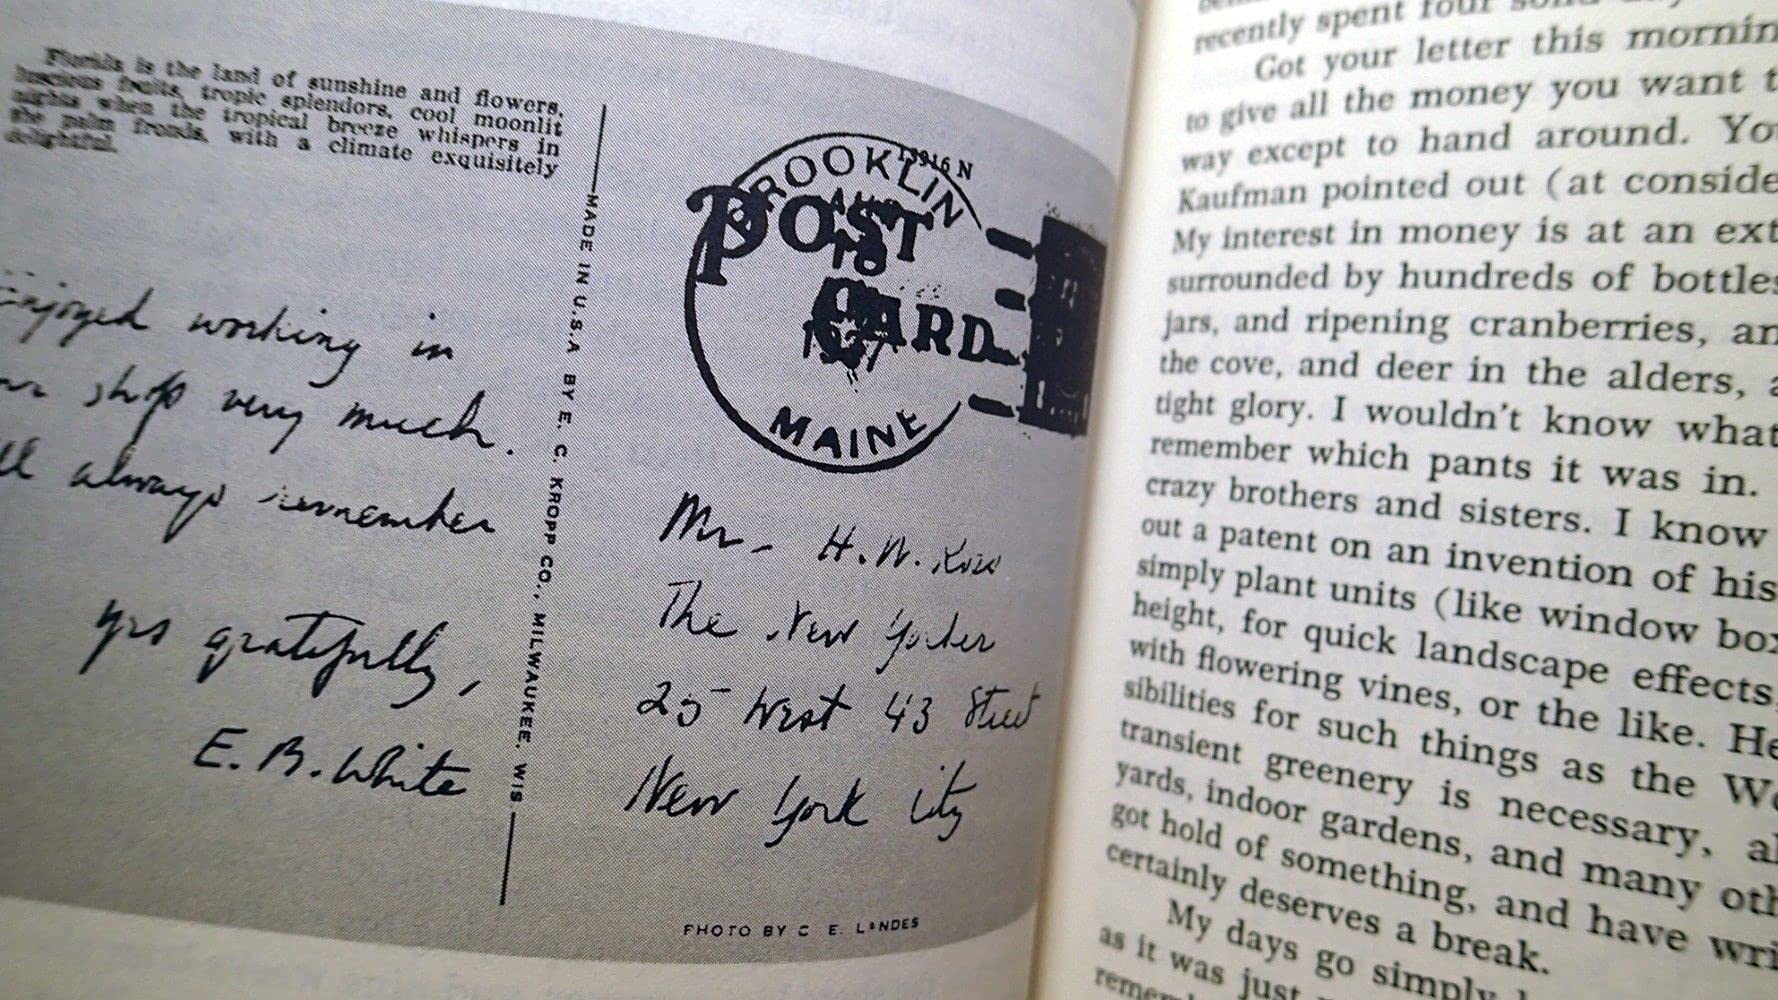 Florida is the land of sunshine and flowers,
luscious fruits, tropic splendors, cool moonlit
nights when the tropical breeze whispers in
the palm fronds, with a climate exquisitely
delightful.
enjoyed working in
shop very much.
always remember
yrs gratefully,
E. B. White
MADE IN U.S.A. BY E. C. KROPP CO., MILWAUKEE, WIS
13916 N
BROOKLIN
POST
CARD
MAINE
Mr. H. W. Ross
The New Yorker
25 West 43 Street
New York City
PHOTO BY C E. LANDES
recently spent four solid
Got your letter this mornin
to give all the money you want t
way except to hand around. Yo
Kaufman pointed out (at conside
My interest in money is at an ext
surrounded by hundreds of bottles
jars, and ripening cranberries, an
the cove, and deer in the alders, a
tight glory. I wouldn't know what
remember which pants it was in.
crazy brothers and sisters. I know
out a patent on an invention of his
simply plant units (like window box
height, for quick landscape effects,
with flowering vines, or the like. He
sibilities for such things as the Wo
transient greenery is necessary, al
yards, indoor gardens, and many oth
got hold of something, and have wri
certainly deserves a break.
My days go simply
as it was just